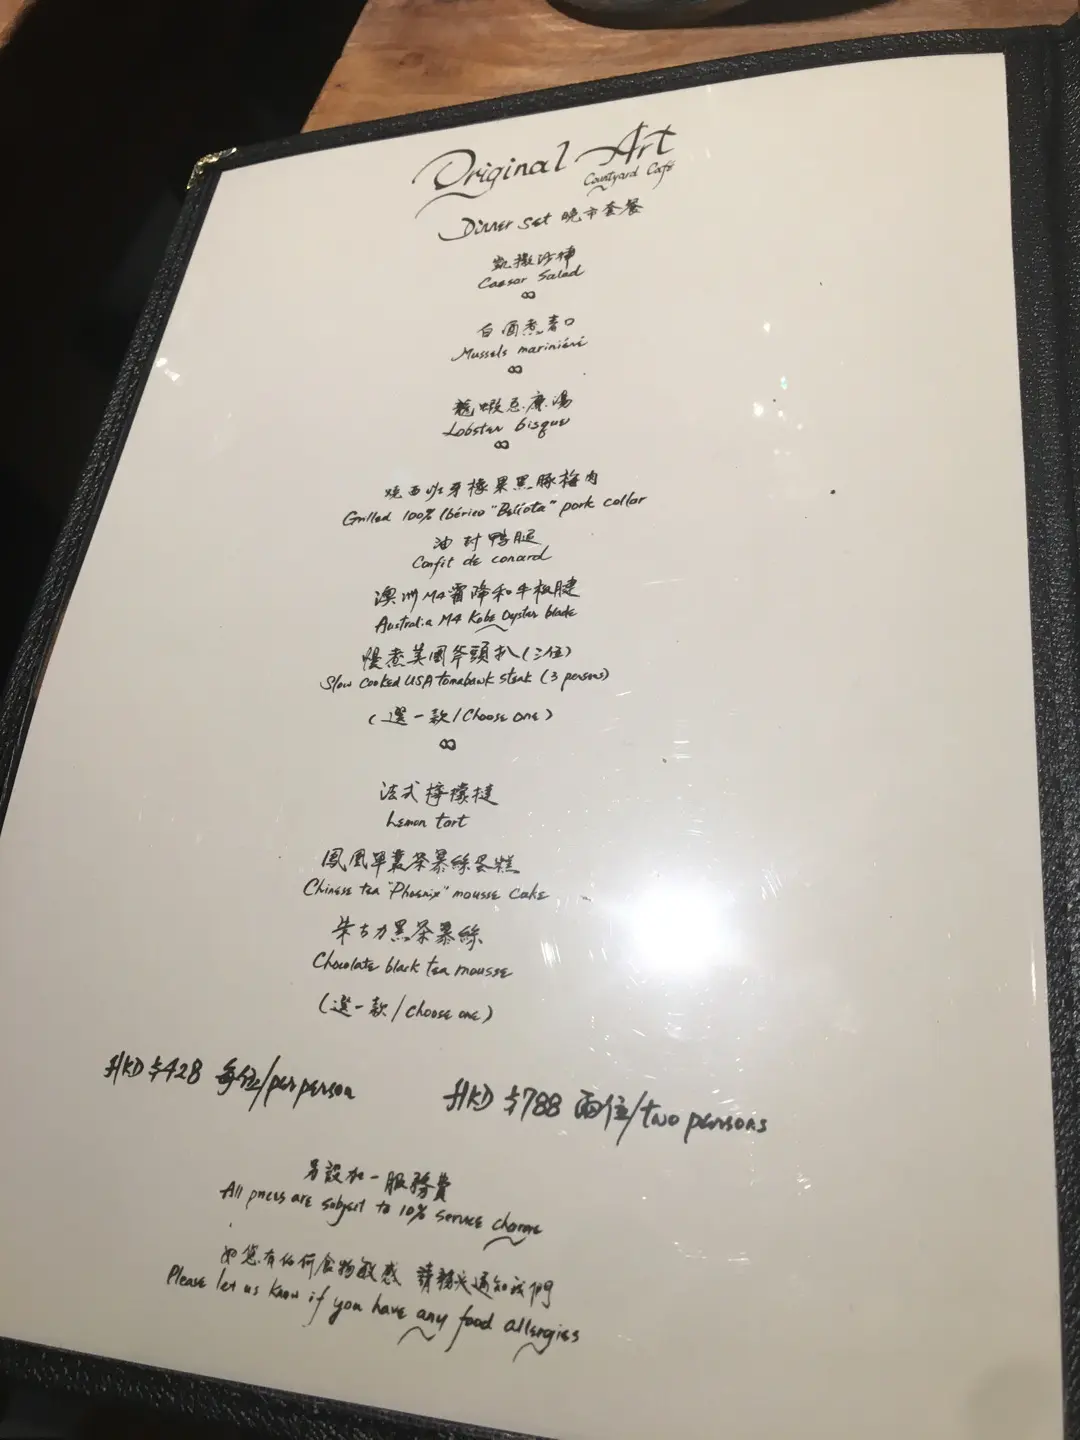 Original Art
Courtyard Café
Dinner Set 晚市套餐
凱撒沙律
Caesar Salad
白酒煮青口
Mussels mariniéré
龍蝦忌廉湯
Lobster bisque
燒西班牙橡果黑豚梅肉
Grilled 100% Ibérico "Bellota" pork collar
油封鴨腿
Confit de conard
澳洲M4霜降和牛板腱
Australia M4 Kobe Oyster blade
慢煮美國斧頭扒(三位)
Slow Cooked USA tomahawk steak (3 persons)
(選一款/Choose one)
法式檸檬撻
Lemon tart
鳳凰單叢茶慕絲蛋糕
Chinese tea "Phoenix" mousse cake
朱古力黑茶慕絲
Chocolate black tea mousse
(選一款/choose one)
HKD $428 每位/per person
HKD $788 兩位/two persons
另設加一服務費
All prices are subject to 10% service charge
如您有任何食物敏感 請務必通知我們
Please let us know if you have any food allergies